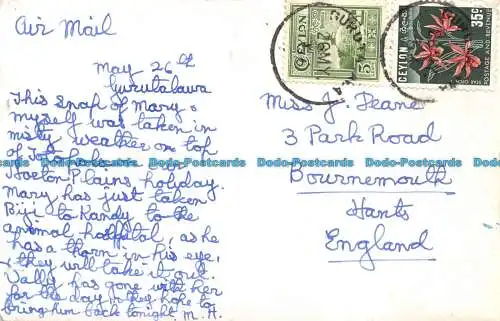 Air Mail
May 26th
Gurutalawa
This snap of Mary &
myself was taken in
misty weather on top
of
Horton Plains holiday.
Mary has just taken
Biji to Kandy to the
animal hospital, as he
has a thorn in his eye,
& they will take it out.
Wally has gone with her
for the day & they hope to
bring him back tonight M.H.
CEYLON
5
CEYLON
35c
POSTAGE AND REVENUE
Miss J. Deane
3 Park Road
Bournemouth
Hants
England
Dodo-Postcards Dodo-Postcards Dodo-Postcards Dodo-Postcards